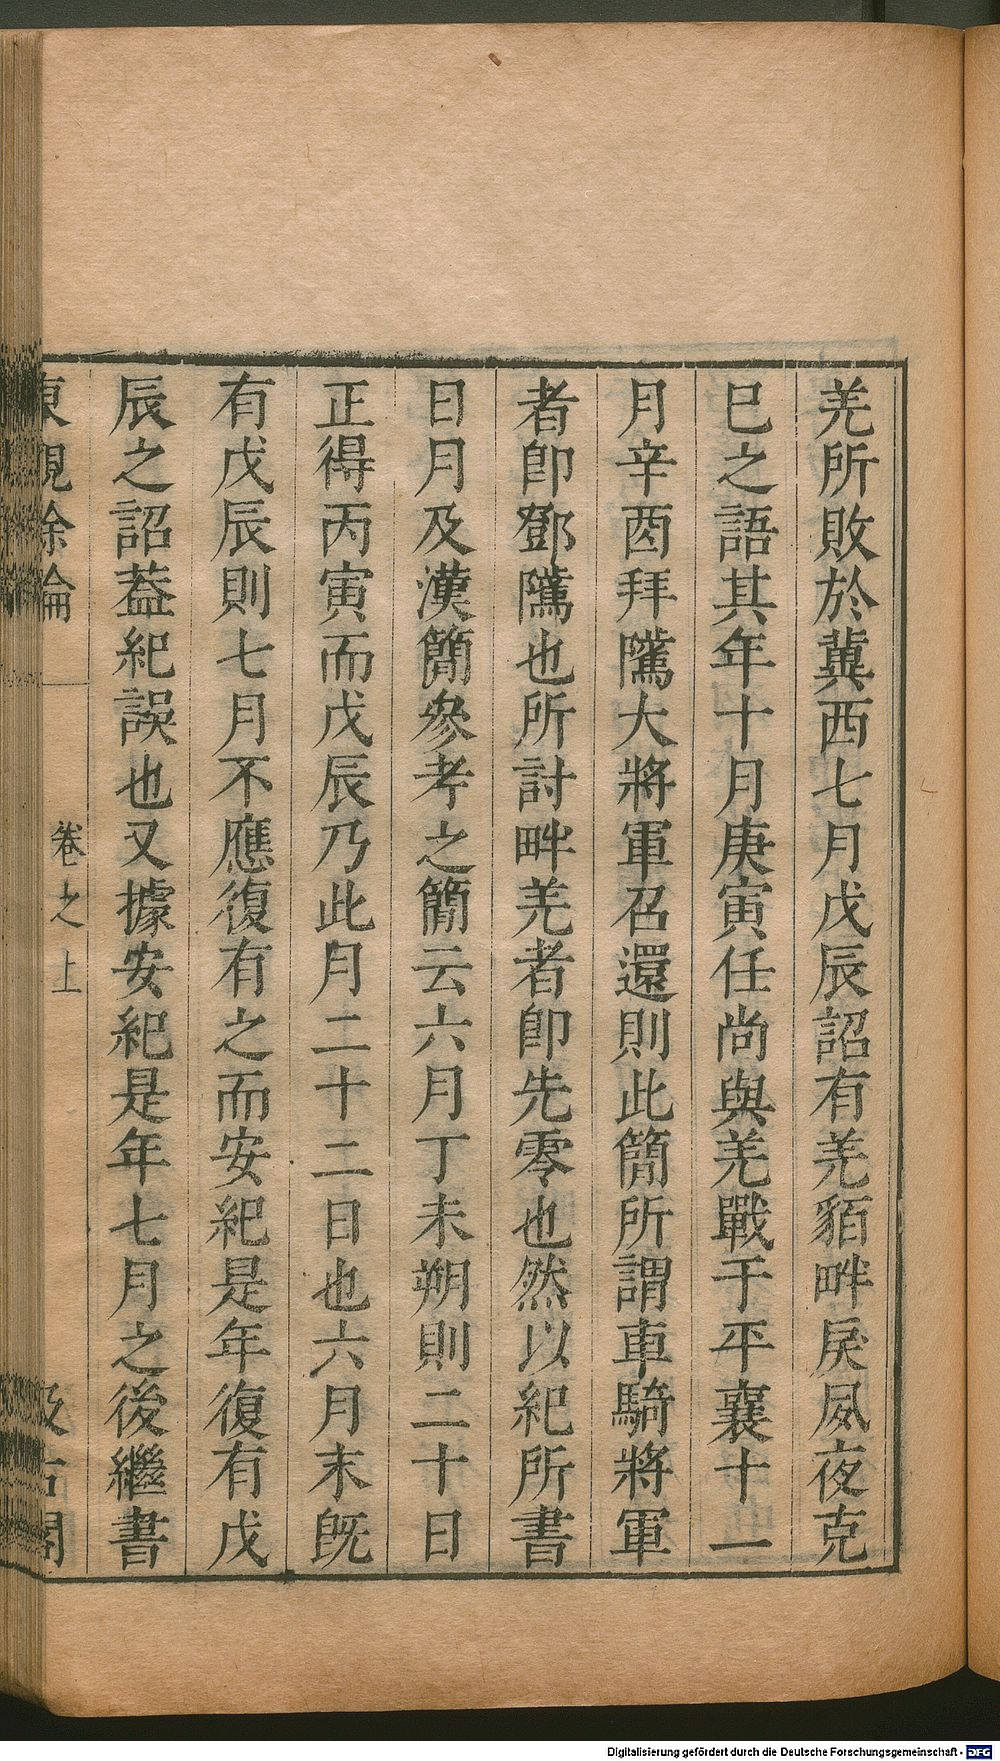 羌所敗於冀西七月戊辰詔有羌貊畔戾夙夜克
巳之語其年十月庚寅任尚與羌戰于平襄十一
月辛酉拜隲大將軍召還則此簡所謂車騎將軍
者卽鄧隲也所討畔羌者卽先零也然以紀所書
日月及漢簡參考之簡云六月丁未朔則二十日
正得丙寅而戊辰乃此月二十二日也六月末旣
有戊辰則七月不應復有之而安紀是年復有戊
辰之詔葢紀誤也又據安紀是年七月之後繼書
東觀餘論 卷之上 汲古閣
Digitalisierung gefördert durch die Deutsche Forschungsgemeinschaft - DFG